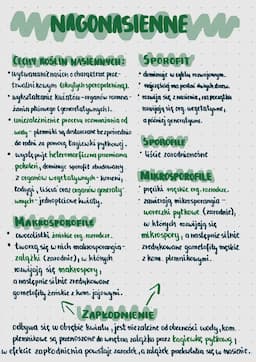 NAGONASIENNE
CECHY ROŚLIN NASIENNYCH:
• wytwarzanie nasion o charakterze prze-
trwalnikowym (okrytych sporopoleniną).
• wykształcanie kwiatów - organów rozmna-
żania płciowego (generatywnych).
• uniezależnienie procesu rozmnażania od
wody - plemniki są dostarczane bezpośrednio
do rodni za pomocą łagiewki pyłkowej.
• występuje heteromorficzna przemiana
pokoleń, dominuje sporofit zbudowany
z organów wegetatywnych - korzeni,
łodygi, liści oraz organów generaty-
wnych - jednopłciowe kwiaty.
MAKROSPOROFILE
• owocolistki żeńskie org. rozrodcze.
• tworzą się w nich makrosporangia -
zalążki (zarodnie), w których
rozwijają się makrospory,
a następnie silnie zredukowane
gametofity żeńskie z kom. jajowymi.
SPOROFIT
• dominuje w cyklu rozwojowym.
• najczęściej ma postać dużych drzew.
• rozwija się z nasienia, na początku
rozwijają się org. wegetatywne,
a później generatywne.
SPOROFILE
• liście zarodnionośne
MIKROSPOROFILE
• pręciki męskie org. rozrodcze.
• zawierają mikrosporangia -
woreczki pyłkowe (zarodnie),
w których rozwijają się
mikrospory, a następnie silnie
zredukowane gametofity męskie
z kom. plemnikowymi.
ZAPŁODNIENIE
odbywa się w obrębie kwiatu, jest niezależne od obecności wody, kom.
plemnikowe są przenoszone do wnętrza zalążka przez łagiewkę pyłkową,
w efekcie zapłodnienia powstaje zarodek, a zalążek przekształca się w nasienie.